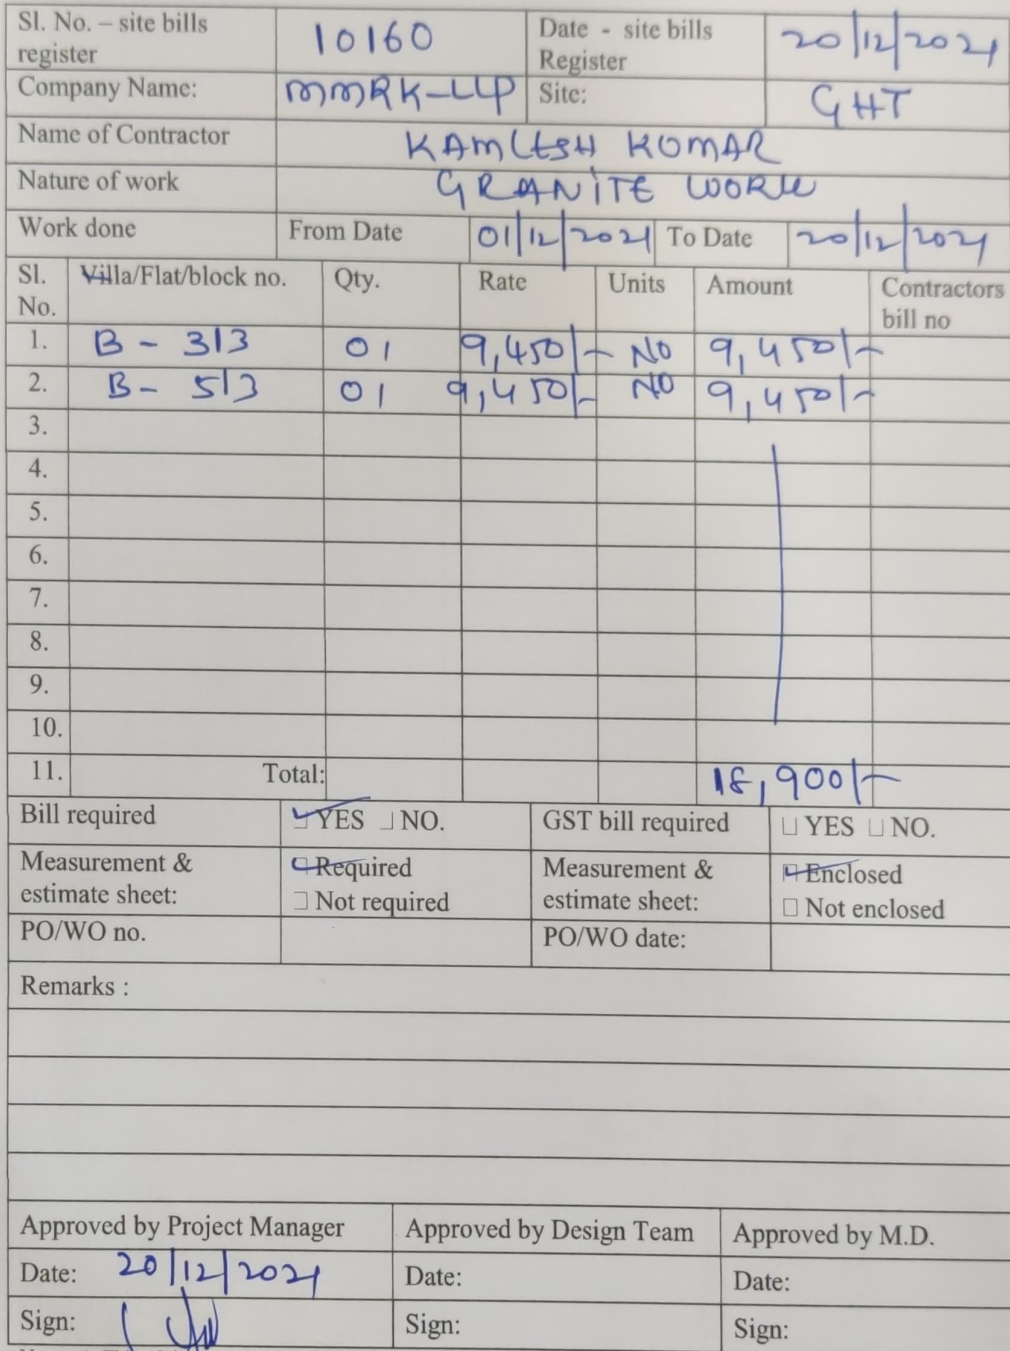 Sl. No. – site bills register 10160 Date - site bills Register 20/12/2021
Company Name: MMRK-LLP Site: GHT
Name of Contractor KAMLESH KUMAR
Nature of work GRANITE WORK
Work done From Date 01/12/2021 To Date 20/12/2021
Sl. No. Villa/Flat/block no. Qty. Rate Units Amount Contractors bill no
1. B - 313 01 9,450/- NO 9,450/-
2. B - 513 01 9,450/- NO 9,450/-
3.
4.
5.
6.
7.
8.
9.
10.
11. Total: 18,900/-
Bill required ☑ YES ☐ NO. GST bill required ☐ YES ☐ NO.
Measurement & estimate sheet: ☑ Required ☐ Not required Measurement & estimate sheet: ☑ Enclosed ☐ Not enclosed
PO/WO no. PO/WO date:
Remarks :
Approved by Project Manager Approved by Design Team Approved by M.D.
Date: 20/12/2021 Date: Date:
Sign: Sign: Sign: